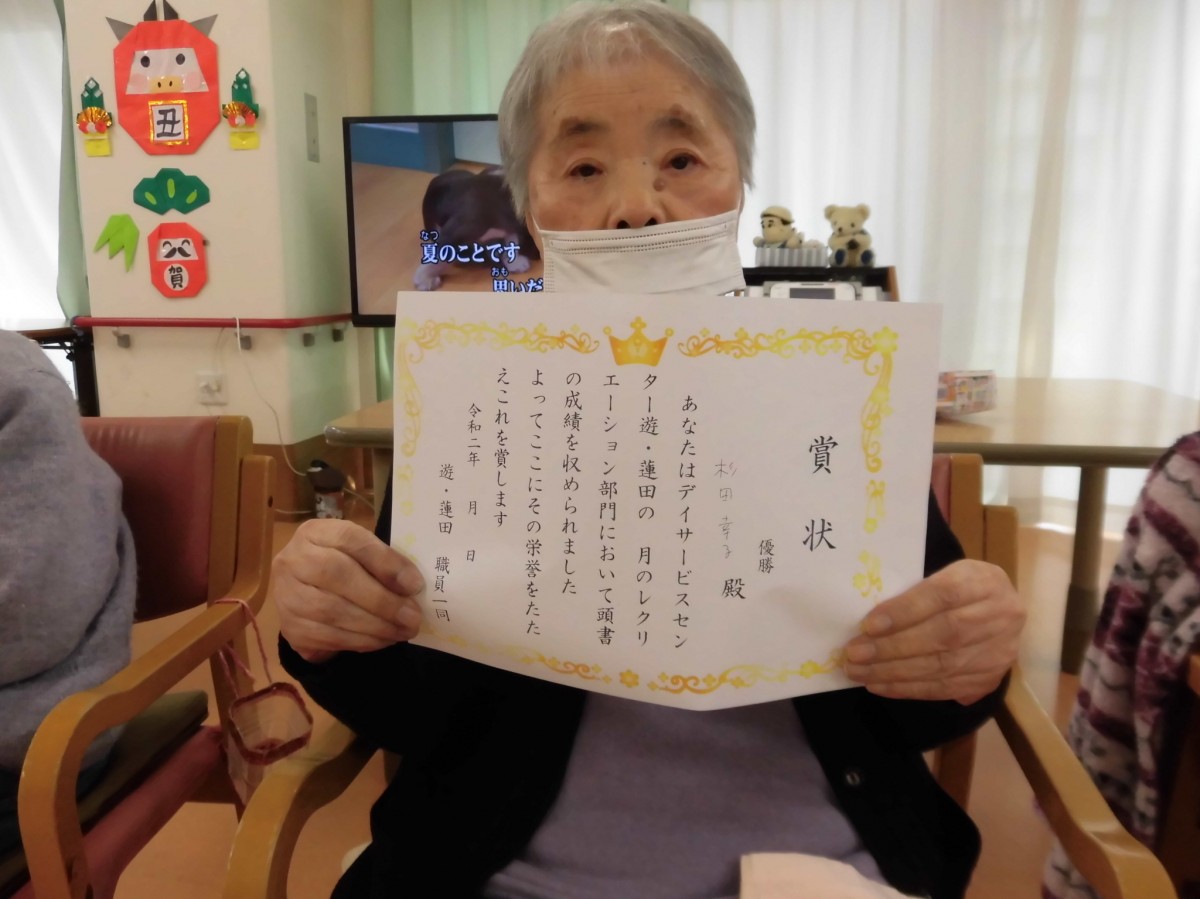 丑
賀
なつ
夏のことです
おも
思いだ
賞状
優勝
杉田幸子 殿
あなたはデイサービスセン
ター遊・蓮田の 月のレクリ
エーション部門において頭書
の成績を収められました
よってここにその栄誉をたた
えこれを賞します
令和二年 月 日
遊・蓮田 職員一同